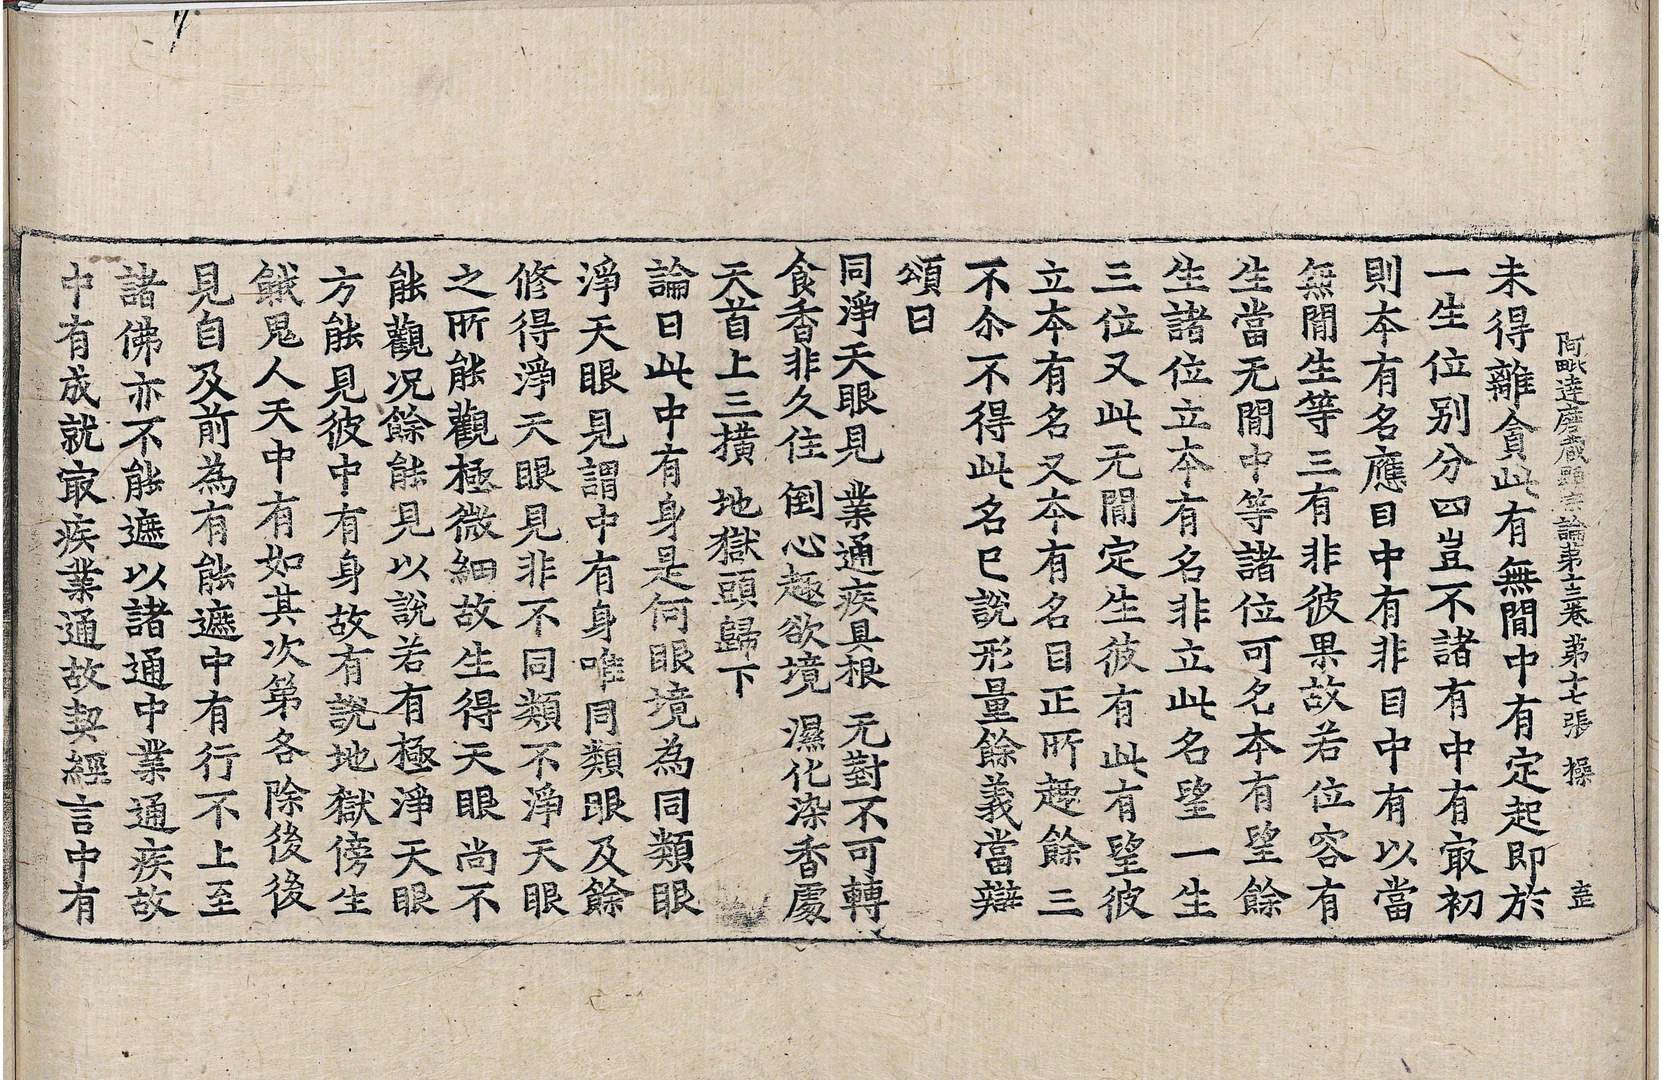 阿毗達磨藏顯宗論第十三卷　第十七張　操
未得離貪此有無閒中有定起即於
一生位别分四豈不諸有中有㝡初
則本有名應目中有非目中有以當
無閒生等三有非彼果故若位容有
生當无閒中等諸位可名本有望餘
生諸位立本有名非立此名望一生
三位又此无閒定生彼有此有望彼
立本有名又本有名目正所趣餘三
不尒不得此名已說形量餘義當辯
頌曰
同淨天眼見　業通疾具根　无對不可轉
食香非久住　倒心趣欲境　濕化染香處
天首上三橫　地獄頭歸下
論曰此中有身是何眼境為同類眼
淨天眼見謂中有身唯同類眼及餘
修得淨天眼見非不同類不淨天眼
之所能觀極微細故生得天眼尚不
能觀况餘能見以說若有極淨天眼
方能見彼中有身故有說地獄傍生
餓鬼人天中有如其次第各除後後
見自及前為有能遮中有行不上至
諸佛亦不能遮以諸通中業通疾故
中有成就㝡疾業通故契經言中有